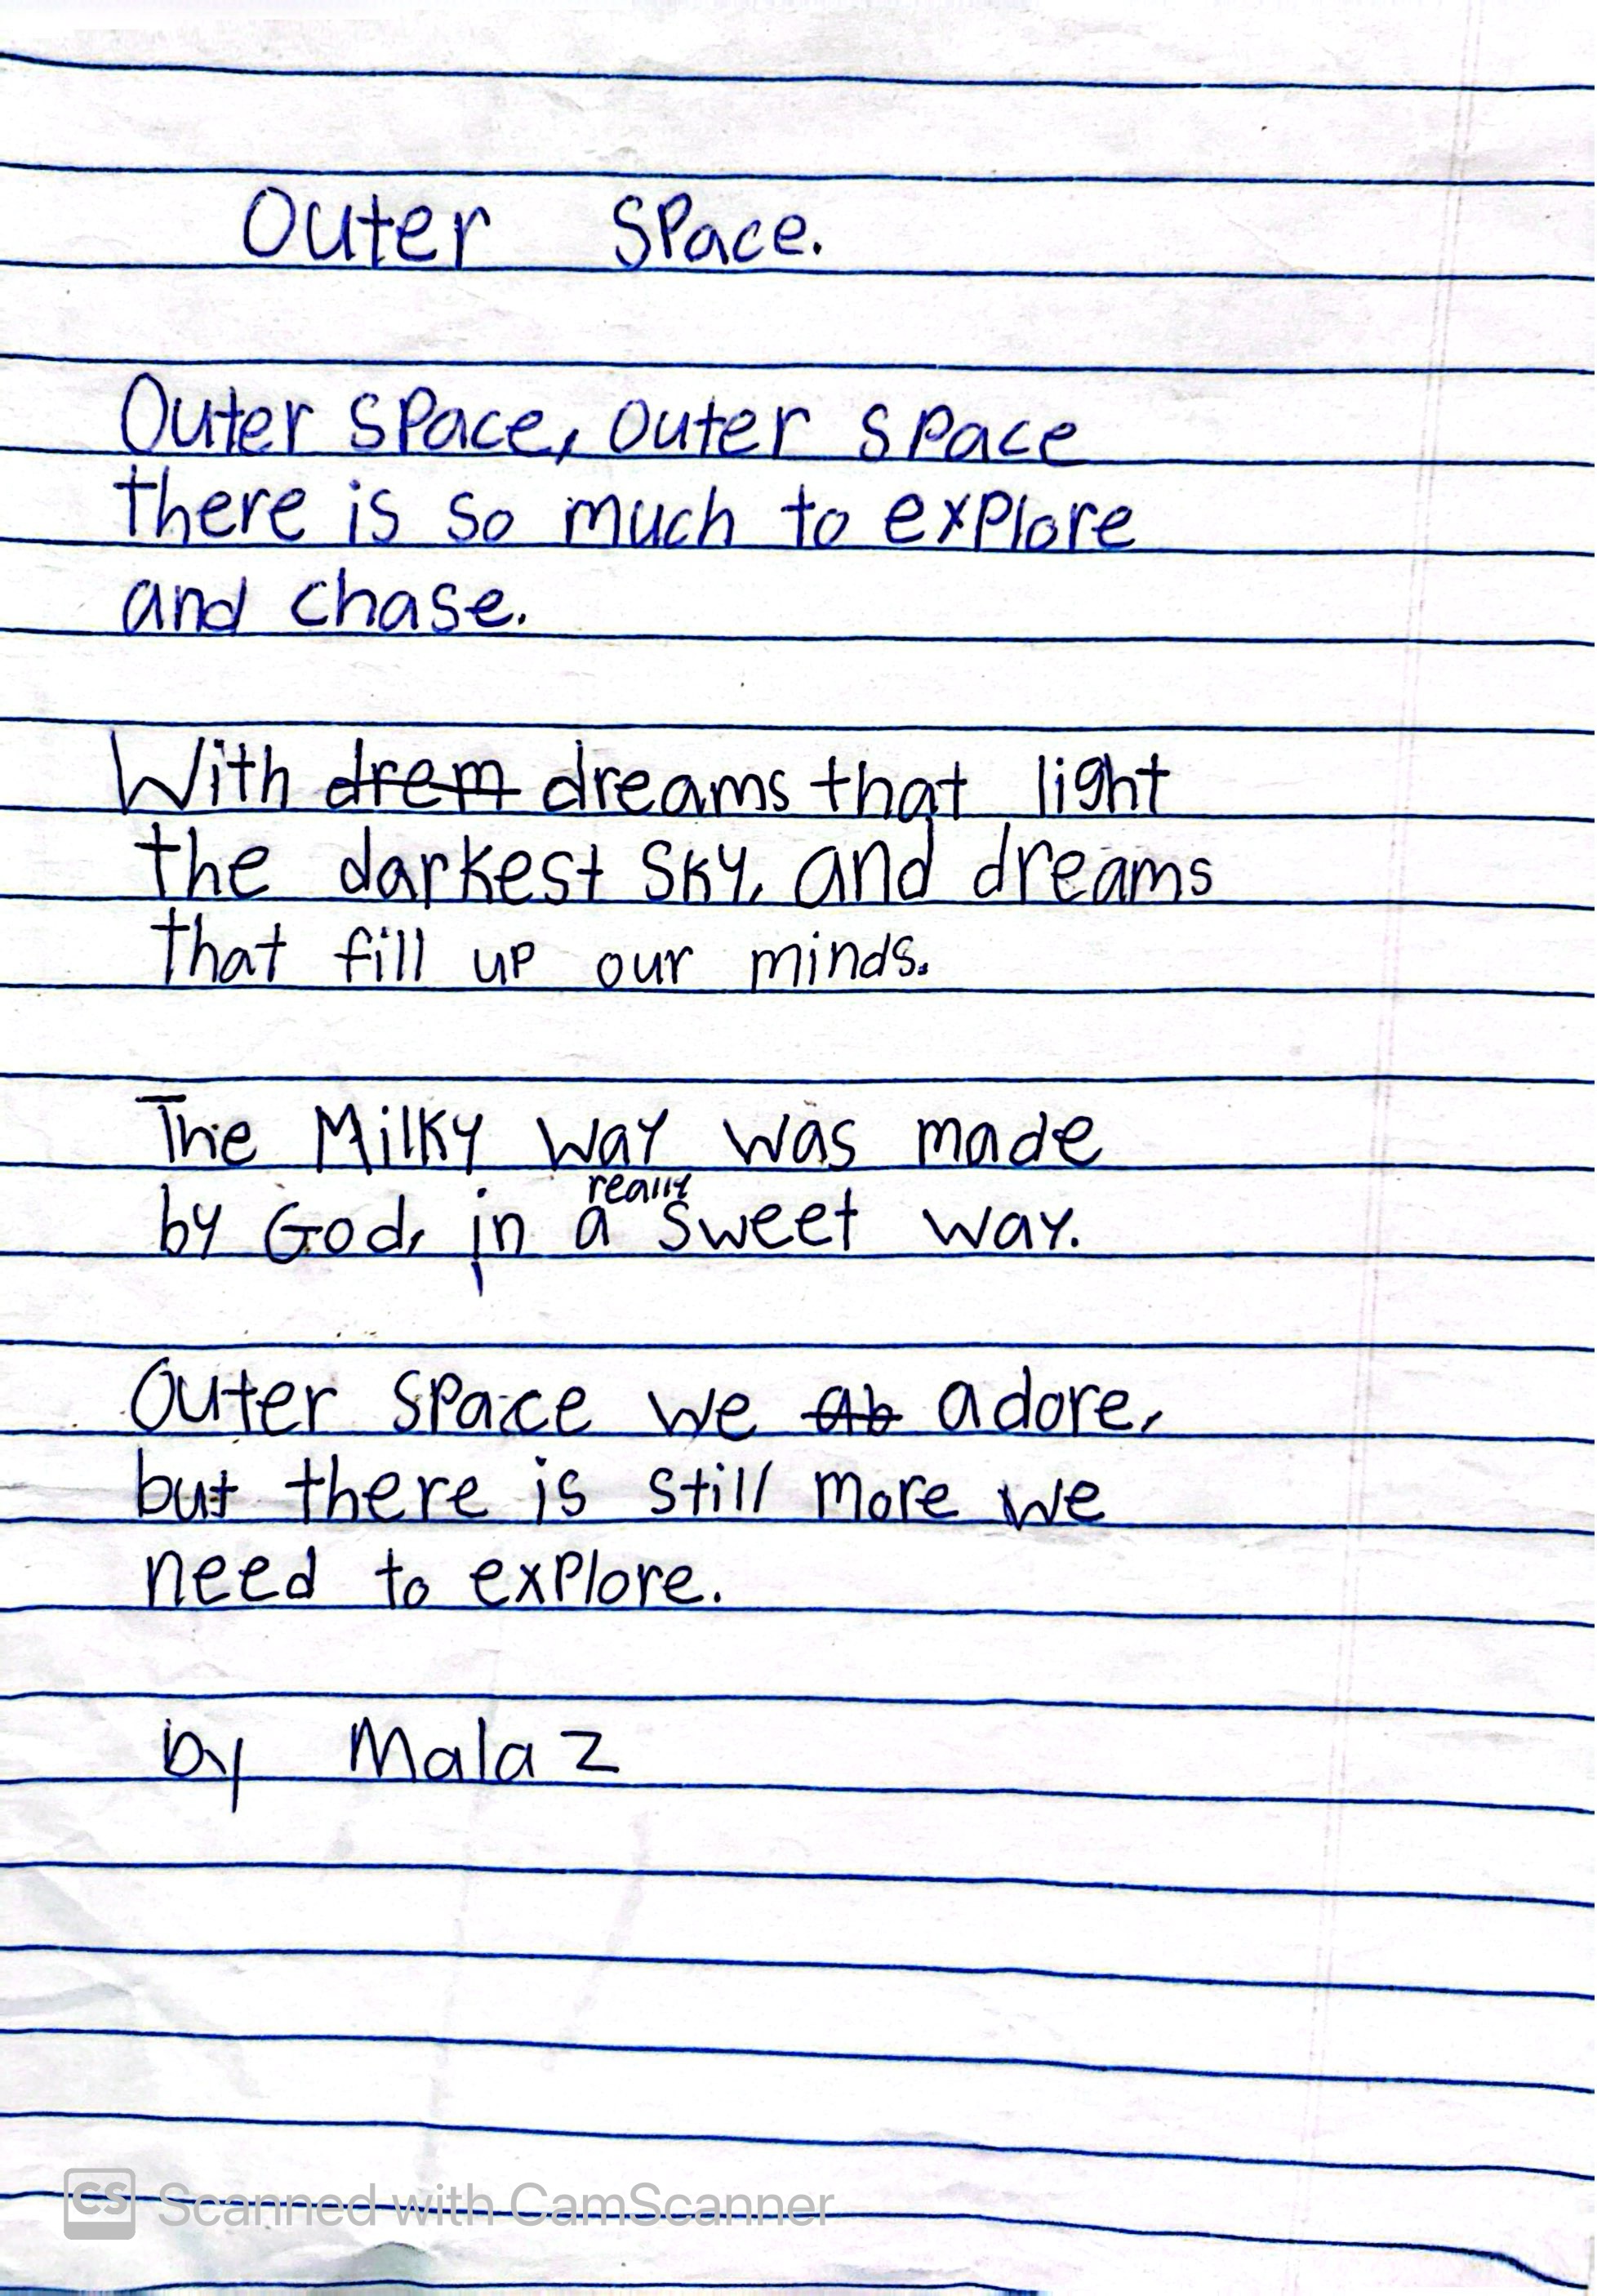 Outer Space.
Outer space, outer space
there is so much to explore
and chase.
With drem dreams that light
the darkest sky, and dreams
that fill up our minds.
The Milky way was made
by God, in a really sweet way.
Outer space we ab adore,
but there is still more we
need to explore.
by Malaz
CS Scanned with CamScanner